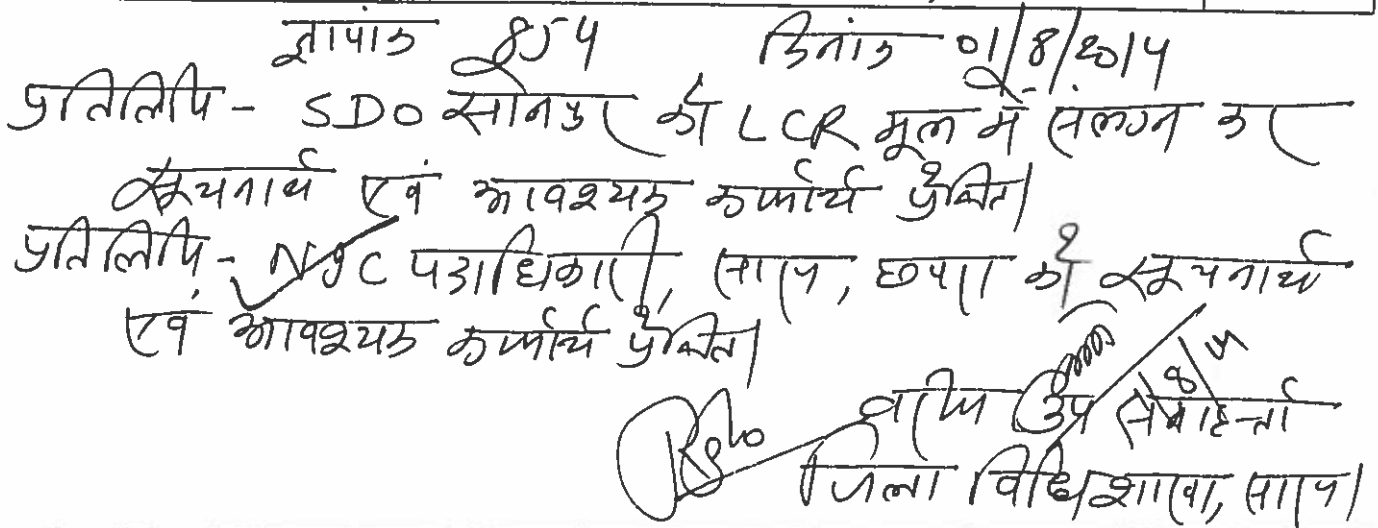 ज्ञापांक 854 दिनांक 01/8/2014
प्रतिलिपि - SDO सोनपुर को LCR मूल में संलग्न कर
सूचनार्थ एवं आवश्यक कार्यार्थ प्रेषित।
प्रतिलिपि - NIC पदाधिकारी, सारण, छपरा को सूचनार्थ
एवं आवश्यक कार्यार्थ प्रेषित।
वरीय उप समाहर्त्ता
जिला विधि शाखा, सारण।